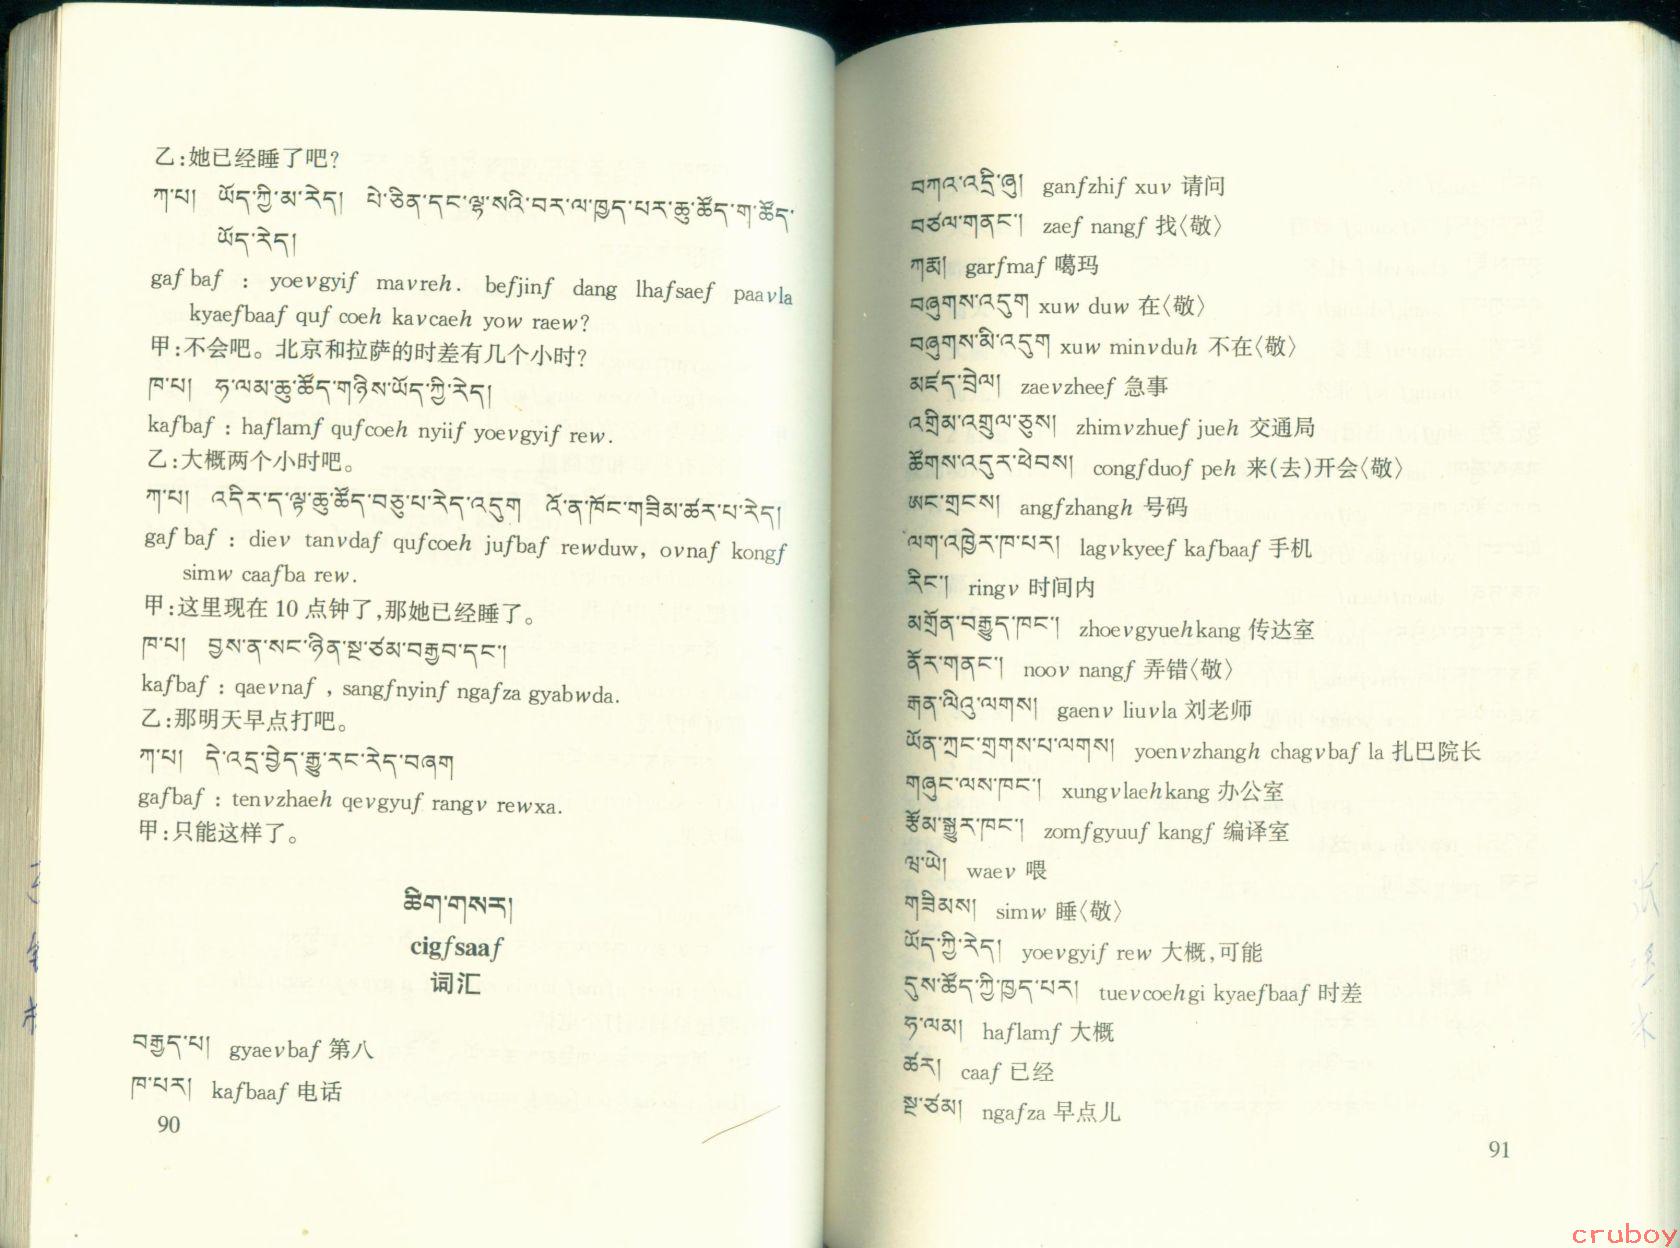 乙:她已经睡了吧?
ཀ་པ། ཡོད་ཀྱི་མ་རེད། པེ་ཅིན་དང་ལྷ་སའི་བར་ལ་ཁྱད་པར་ཆུ་ཚོད་ག་ཚོད་
ཡོད་རེད།
gaf baf : yoevgyif mavreh. befjinf dang lhafsaef paavla
kyaefbaaf quf coeh kavcaeh yow raew?
甲:不会吧。北京和拉萨的时差有几个小时?
ཁ་པ། ཧ་ལམ་ཆུ་ཚོད་གཉིས་ཡོད་ཀྱི་རེད།
kafbaf : haflamf qufcoeh nyiif yoevgyif rew.
乙:大概两个小时吧。
ཀ་པ། འདིར་ད་ལྟ་ཆུ་ཚོད་བཅུ་པ་རེད་འདུག འོ་ན་ཁོང་གཟིམ་ཚར་པ་རེད།
gaf baf : diev tanvdaf qufcoeh jufbaf rewduw, ovnaf kongf
simw caafba rew.
甲:这里现在 10 点钟了,那她已经睡了。
ཁ་པ། བྱས་ན་སང་ཉིན་སྔ་ཙམ་བརྒྱབ་དང་།
kafbaf : qaevnaf , sangfnyinf ngafza gyabwda.
乙:那明天早点打吧。
ཀ་པ། དེ་འདྲ་བྱེད་རྒྱུ་རང་རེད་བཞག
gafbaf : tenvzhaeh qevgyuf rangv rewxa.
甲:只能这样了。
ཚིག་གསར།
cigfsaaf
词汇
བརྒྱད་པ། gyaevbaf 第八
ཁ་པར། kafbaaf 电话
90
བཀའ་འདྲི་ཞུ། ganfzhif xuv 请问
བཙལ་གནང་། zaef nangf 找〈敬〉
ཀརྨ། garfmaf 噶玛
བཞུགས་འདུག xuw duw 在〈敬〉
བཞུགས་མི་འདུག xuw minvduh 不在〈敬〉
མཛད་བྲེལ། zaevzheef 急事
འགྲིམ་འགྲུལ་ཅུས། zhimvzhuef jueh 交通局
ཚོགས་འདུར་ཕེབས། congfduof peh 来(去)开会〈敬〉
ཨང་གྲངས། angfzhangh 号码
ལག་འཁྱེར་ཁ་པར། lagvkyeef kafbaaf 手机
རིང་། ringv 时间内
མགྲོན་བརྒྱུད་ཁང་། zhoevgyuehkang 传达室
ནོར་གནང་། noov nangf 弄错〈敬〉
རྒན་ལིའུ་ལགས། gaenv liuvla 刘老师
ཡོན་ཀྲང་གྲགས་པ་ལགས། yoenvzhangh chagvbaf la 扎巴院长
གཞུང་ལས་ཁང་། xungvlaehkang 办公室
རྩོམ་སྒྱུར་ཁང་། zomfgyuuf kangf 编译室
ཝ་ཡེ། waev 喂
གཟིམས། simw 睡〈敬〉
ཡོད་ཀྱི་རེད། yoevgyif rew 大概,可能
དུས་ཚོད་ཀྱི་ཁྱད་པར། tuevcoehgi kyaefbaaf 时差
ཧ་ལམ། haflamf 大概
ཚར། caaf 已经
སྔ་ཙམ། ngafza 早点儿
91
cruboy